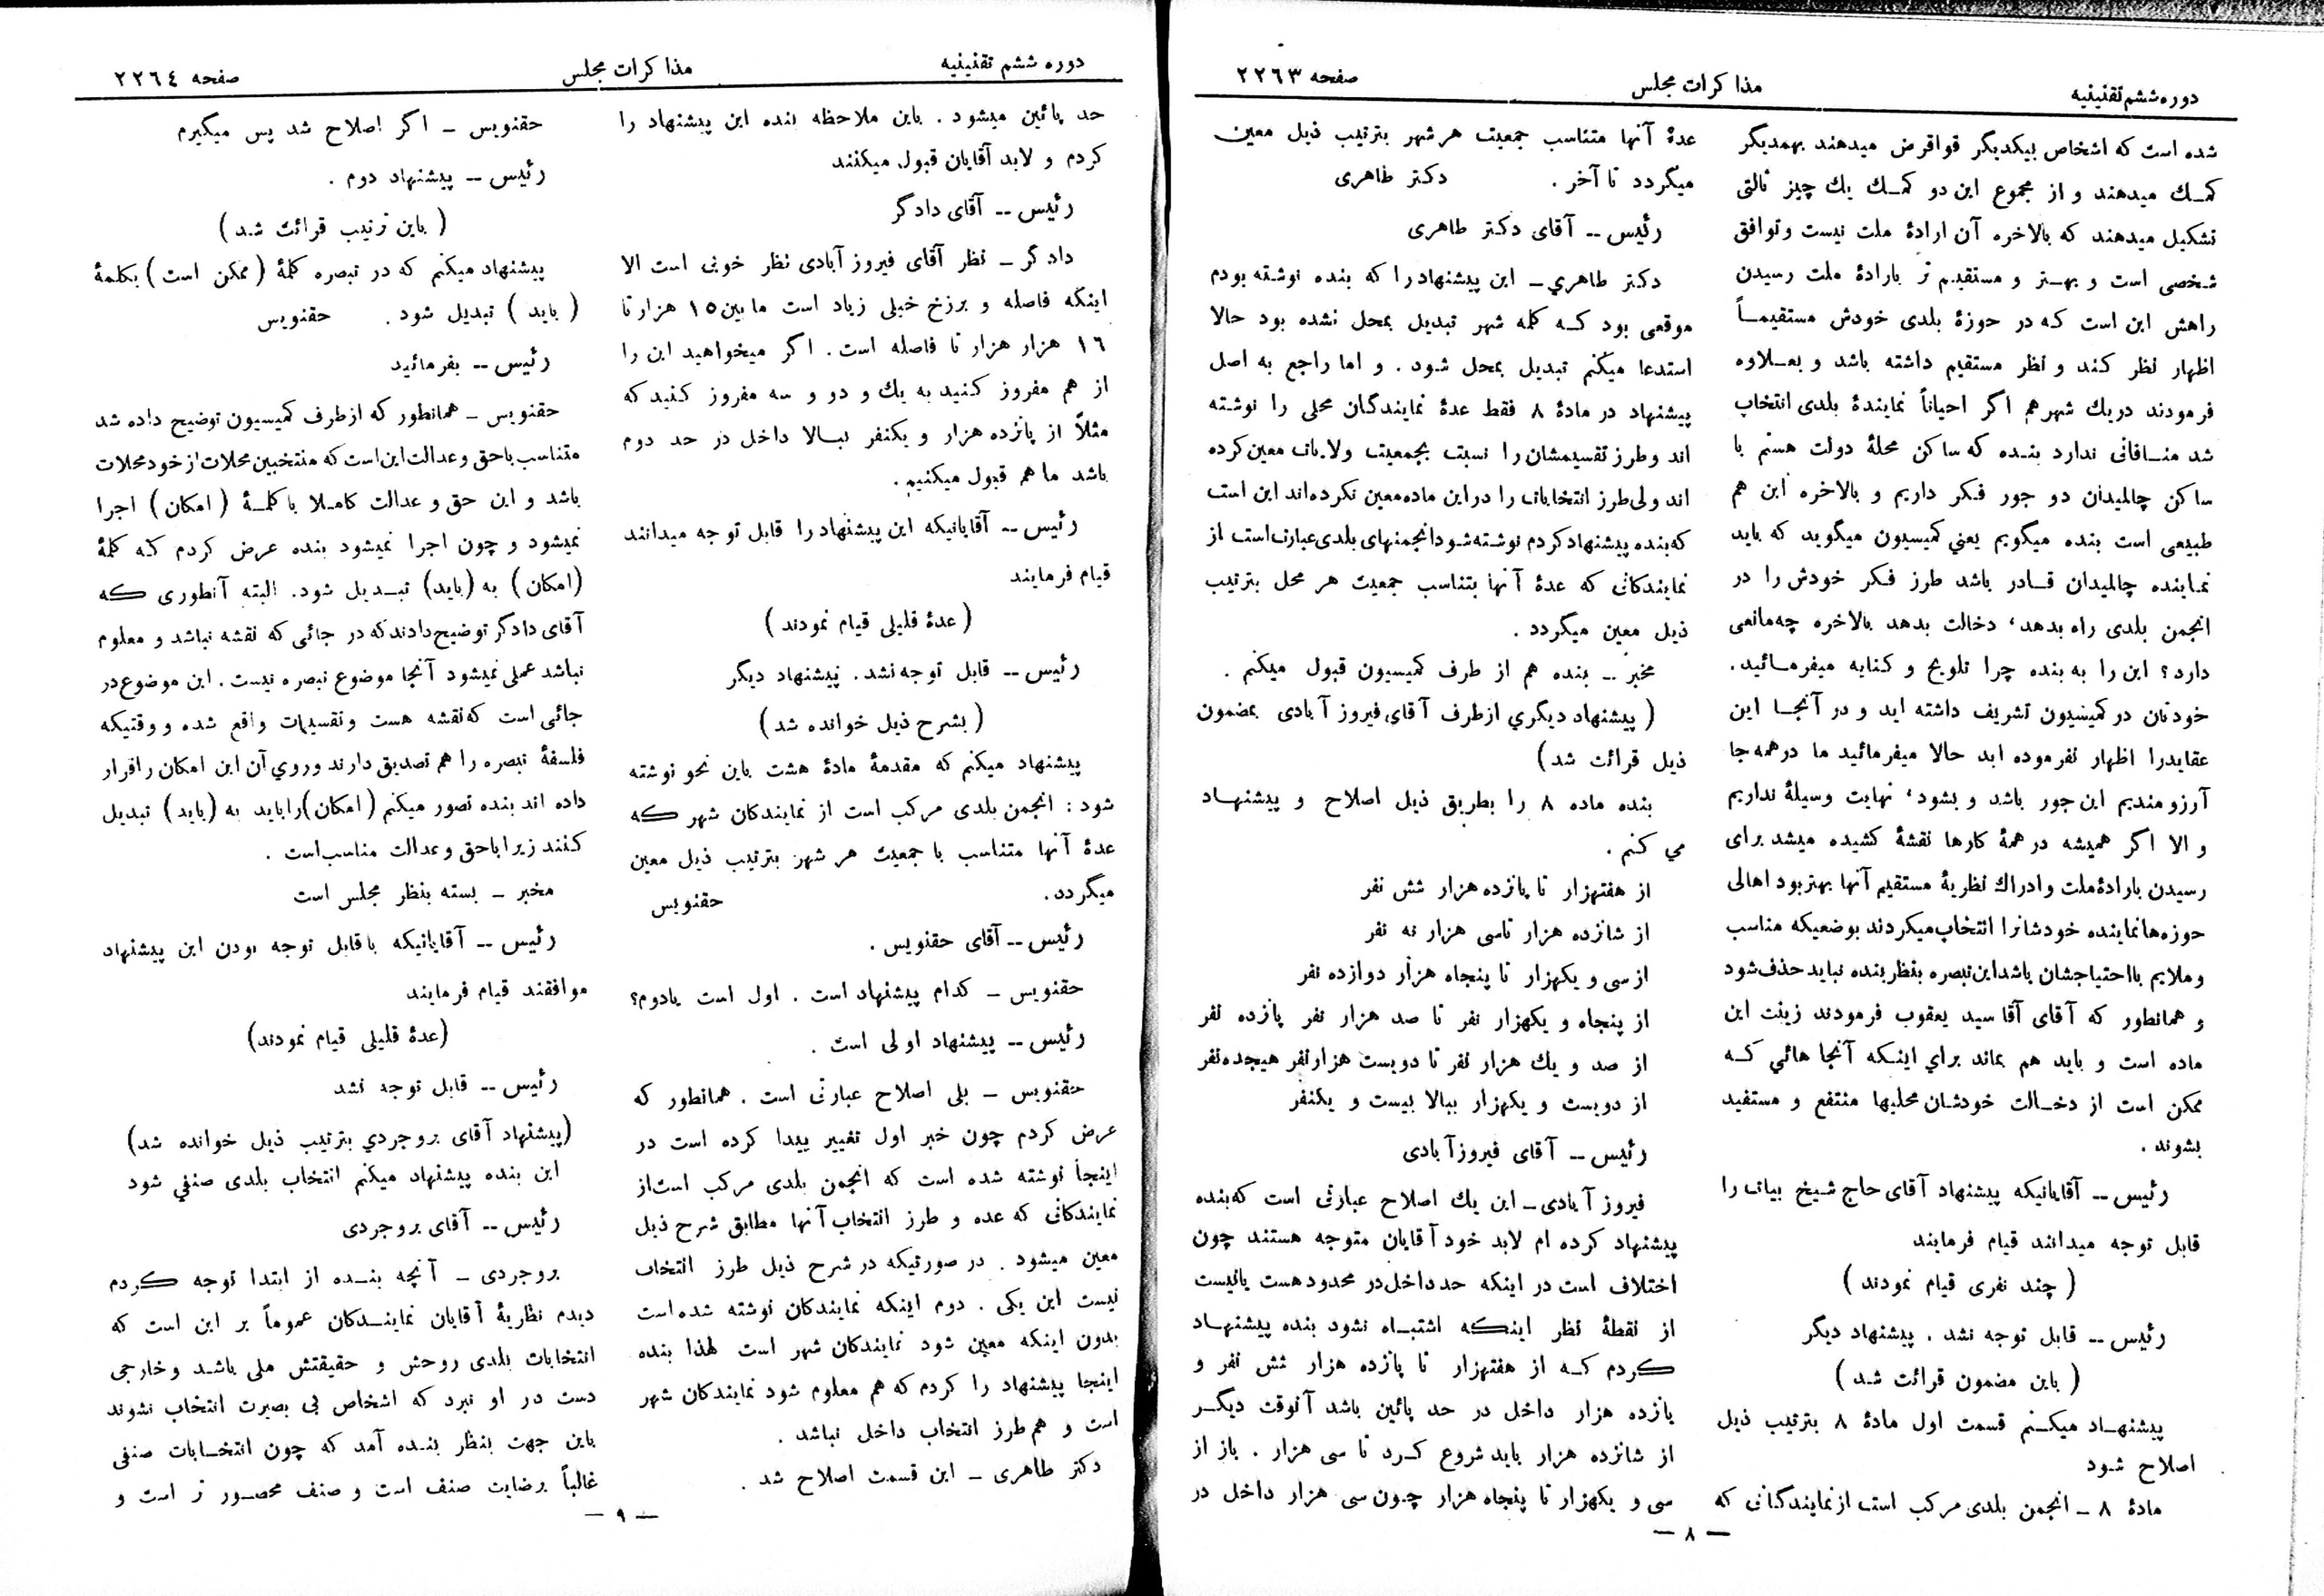 دوره ششم تقنینیه
مذاکرات مجلس
صفحه ۲۲۶۳
شده است که اشخاص بیکدیگر قواقرض میدهند بهمدیگر
کمك میدهند و از مجموع این دو کمك یك چیز ثالثی
تشکیل میدهند که بالاخره آن ارادهٔ ملت نیست و توافق
شخصی است و بهتر و مستقیم تر بارادهٔ ملت رسیدن
راهش این است که در حوزهٔ بلدی خودش مستقیماً
اظهار نظر کند و نظر مستقیم داشته باشد و بعلاوه
فرمودند در یك شهر هم اگر احیاناً نمایندهٔ بلدی انتخاب
شد منافاتی ندارد بنده که ساکن محلهٔ دولت هستم با
ساکن چالمیدان دو جور فکر داریم و بالاخره این هم
طبیعی است بنده میگویم یعنی کمیسیون میگوید که باید
نماینده چالمیدان قادر باشد طرز فکر خودش را در
انجمن بلدی راه بدهد، دخالت بدهد بالاخره چه مانعی
دارد؟ این را به بنده چرا تلویح و کنایه میفرمائید.
خودتان در کمیسیون تشریف داشته اید و در آنجا این
عقایدرا اظهار نفرموده اید حالا میفرمائید ما در همه جا
آرزومندیم این جور باشد و بشود، نهایت وسیلهٔ نداریم
و الا اگر همیشه در همهٔ کارها نقشهٔ کشیده میشد برای
رسیدن بارادهٔ ملت و ادراك نظریهٔ مستقیم آنها بهتر بود اهالی
حوزه‌ها نماینده خودشانرا انتخاب میکردند بوضعیکه مناسب
و ملایم با احتیاجشان باشد این تبصره بنظر بنده نباید حذف شود
و همانطور که آقای آقا سید یعقوب فرمودند زینت این
ماده است و باید هم بماند برای اینکه آنجا هائی که
ممکن است از دخالت خودشان محلیها منتفع و مستفید
بشوند.
رئیس -- آقایانیکه پیشنهاد آقای حاج شیخ بیات را
قابل توجه میدانند قیام فرمایند
( چند نفری قیام نمودند )
رئیس -- قابل توجه نشد. پیشنهاد دیگر
( باین مضمون قرائت شد )
پیشنهاد میکنم قسمت اول مادهٔ ۸ بترتیب ذیل
اصلاح شود
مادهٔ ۸ - انجمن بلدی مرکب است از نمایندگانی که
عدهٔ آنها متناسب جمعیت هر شهر بترتیب ذیل معین
میگردد تا آخر. دکتر طاهری
رئیس -- آقای دکتر طاهری
دکتر طاهری - این پیشنهاد را که بنده نوشته بودم
موقعی بود که کله شهر تبدیل بمحل نشده بود حالا
استدعا میکنم تبدیل بمحل شود. و اما راجع به اصل
پیشنهاد در مادهٔ ۸ فقط عدهٔ نمایندگان محلی را نوشته
اند و طرز تقسیمشان را نسبت بجمعیت ولایات معین کرده
اند ولی طرز انتخابات را در این ماده معین نکرده‌اند این است
که بنده پیشنهاد کردم نوشته شود انجمنهای بلدی عبارت است از
نمایندگانی که عدهٔ آنها بتناسب جمعیت هر محل بترتیب
ذیل معین میگردد.
مخبر -- بنده هم از طرف کمیسیون قبول میکنم.
( پیشنهاد دیگری از طرف آقای فیروز آبادی بمضمون
ذیل قرائت شد )
بنده ماده ۸ را بطریق ذیل اصلاح و پیشنهاد
می کنم.
از هفتهزار تا پانزده هزار شش نفر
از شانزده هزار تا سی هزار نه نفر
از سی و یکهزار تا پنجاه هزار دوازده نفر
از پنجاه و یکهزار نفر تا صد هزار نفر پانزده نفر
از صد و یك هزار نفر تا دویست هزار نفر هیجده نفر
از دویست و یکهزار ببالا بیست و یکنفر
رئیس -- آقای فیروزآبادی
فیروز آبادی - این یك اصلاح عبارتی است که بنده
پیشنهاد کرده ام لابد خود آقایان متوجه هستند چون
اختلاف است در اینکه حد داخل در محدود هست یا نیست
از نقطهٔ نظر اینکه اشتباه نشود بنده پیشنهاد
کردم که از هفتهزار تا پانزده هزار شش نفر و
پانزده هزار داخل در حد پائین باشد آنوقت دیگر
از شانزده هزار باید شروع کرد تا سی هزار. باز از
سی و یکهزار تا پنجاه هزار چون سی هزار داخل در
— ۸ —
دوره ششم تقنینیه
مذاکرات مجلس
صفحه ۲۲۶۴
حد پائین میشود. باین ملاحظه بنده این پیشنهاد را
کردم و لابد آقایان قبول میکنند
رئیس -- آقای دادگر
دادگر - نظر آقای فیروز آبادی نظر خوبی است الا
اینکه فاصله و برزخ خیلی زیاد است ما بین ۱۵ هزار تا
۱۶ هزار هزار تا فاصله است. اگر میخواهید این را
از هم مفروز کنید به یك و دو و سه مفروز کنید که
مثلاً از پانزده هزار و یکنفر ببالا داخل در حد دوم
باشد ما هم قبول میکنیم.
رئیس -- آقایانیکه این پیشنهاد را قابل توجه میدانند
قیام فرمایند
( عدهٔ قلیلی قیام نمودند )
رئیس -- قابل توجه نشد. پیشنهاد دیگر
( بشرح ذیل خوانده شد )
پیشنهاد میکنم که مقدمهٔ مادهٔ هشت باین نحو نوشته
شود: انجمن بلدی مرکب است از نمایندگان شهر که
عدهٔ آنها متناسب با جمعیت هر شهر بترتیب ذیل معین
میگردد. حقنویس
رئیس -- آقای حقنویس.
حقنویس - کدام پیشنهاد است. اول است یا دوم؟
رئیس -- پیشنهاد اولی است.
حقنویس - بلی اصلاح عبارتی است. همانطور که
عرض کردم چون خبر اول تغییر پیدا کرده است در
اینجا نوشته شده است که انجمن بلدی مرکب است از
نمایندگانی که عده و طرز انتخاب آنها مطابق شرح ذیل
معین میشود. در صورتیکه در شرح ذیل طرز انتخاب
نیست این یکی. دوم اینکه نمایندگان نوشته شده است
بدون اینکه معین شود نمایندگان شهر است لهذا بنده
اینجا پیشنهاد را کردم که هم معلوم شود نمایندگان شهر
است و هم طرز انتخاب داخل نباشد.
دکتر طاهری - این قسمت اصلاح شد.
حقنویس - اگر اصلاح شد پس میگیرم
رئیس -- پیشنهاد دوم.
( باین ترتیب قرائت شد )
پیشنهاد میکنم که در تبصره کلمهٔ ( ممکن است ) بکلمهٔ
( باید ) تبدیل شود. حقنویس
رئیس -- بفرمائید
حقنویس - همانطور که از طرف کمیسیون توضیح داده شد
متناسب با حق و عدالت این است که منتخبین محلات از خود محلات
باشد و این حق و عدالت کاملا با کلمهٔ ( امکان ) اجرا
نمیشود و چون اجرا نمیشود بنده عرض کردم که کلمهٔ
(امکان ) به (باید) تبدیل شود. البته آنطوری که
آقای دادگر توضیح دادند که در جائی که نقشه نباشد و معلوم
نباشد عملی نمیشود آنجا موضوع تبصره نیست. این موضوع در
جائی است که نقشه هست و تقسیمات واقع شده و وقتیکه
فلسفهٔ تبصره را هم تصدیق دارند و روی آن این امکان را قرار
داده اند بنده تصور میکنم ( امکان ) را باید به (باید) تبدیل
کنند زیرا با حق و عدالت مناسب است.
مخبر - بسته بنظر مجلس است
رئیس -- آقایانیکه با قابل توجه بودن این پیشنهاد
موافقند قیام فرمایند
(عدهٔ قلیلی قیام نمودند)
رئیس -- قابل توجه نشد
(پیشنهاد آقای بروجردی بترتیب ذیل خوانده شد)
این بنده پیشنهاد میکنم انتخاب بلدی صنفی شود
رئیس -- آقای بروجردی
بروجردی - آنچه بنده از ابتدا توجه کردم
دیدم نظریهٔ آقایان نمایندگان عموماً بر این است که
انتخابات بلدی روحش و حقیقتش ملی باشد و خارجی
دست در او نبرد که اشخاص بی بصیرت انتخاب نشوند
باین جهت بنظر بنده آمد که چون انتخابات صنفی
غالباً برضایت صنف است و صنف محصور تر است و
— ۹ —